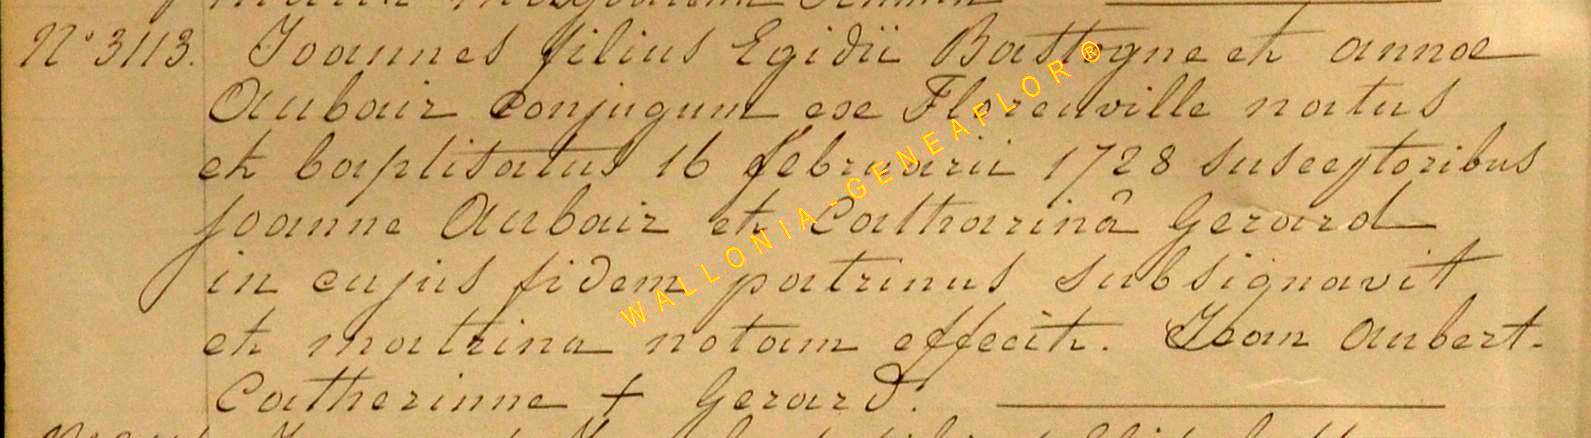 N° 3113. Joannes filius Egidii Bastogne et annae
Aubair conjugum ex Florenville natus
et baptisatus 16 februarii 1728 susceptoribus
joanne Aubair et Catharinâ Gerard
in cujus fidem patrinus subsignavit
et matrina notam effecit. Jean Aubert.
Catherinne + Gerard.
WALLONIA-GENEAFLOR®